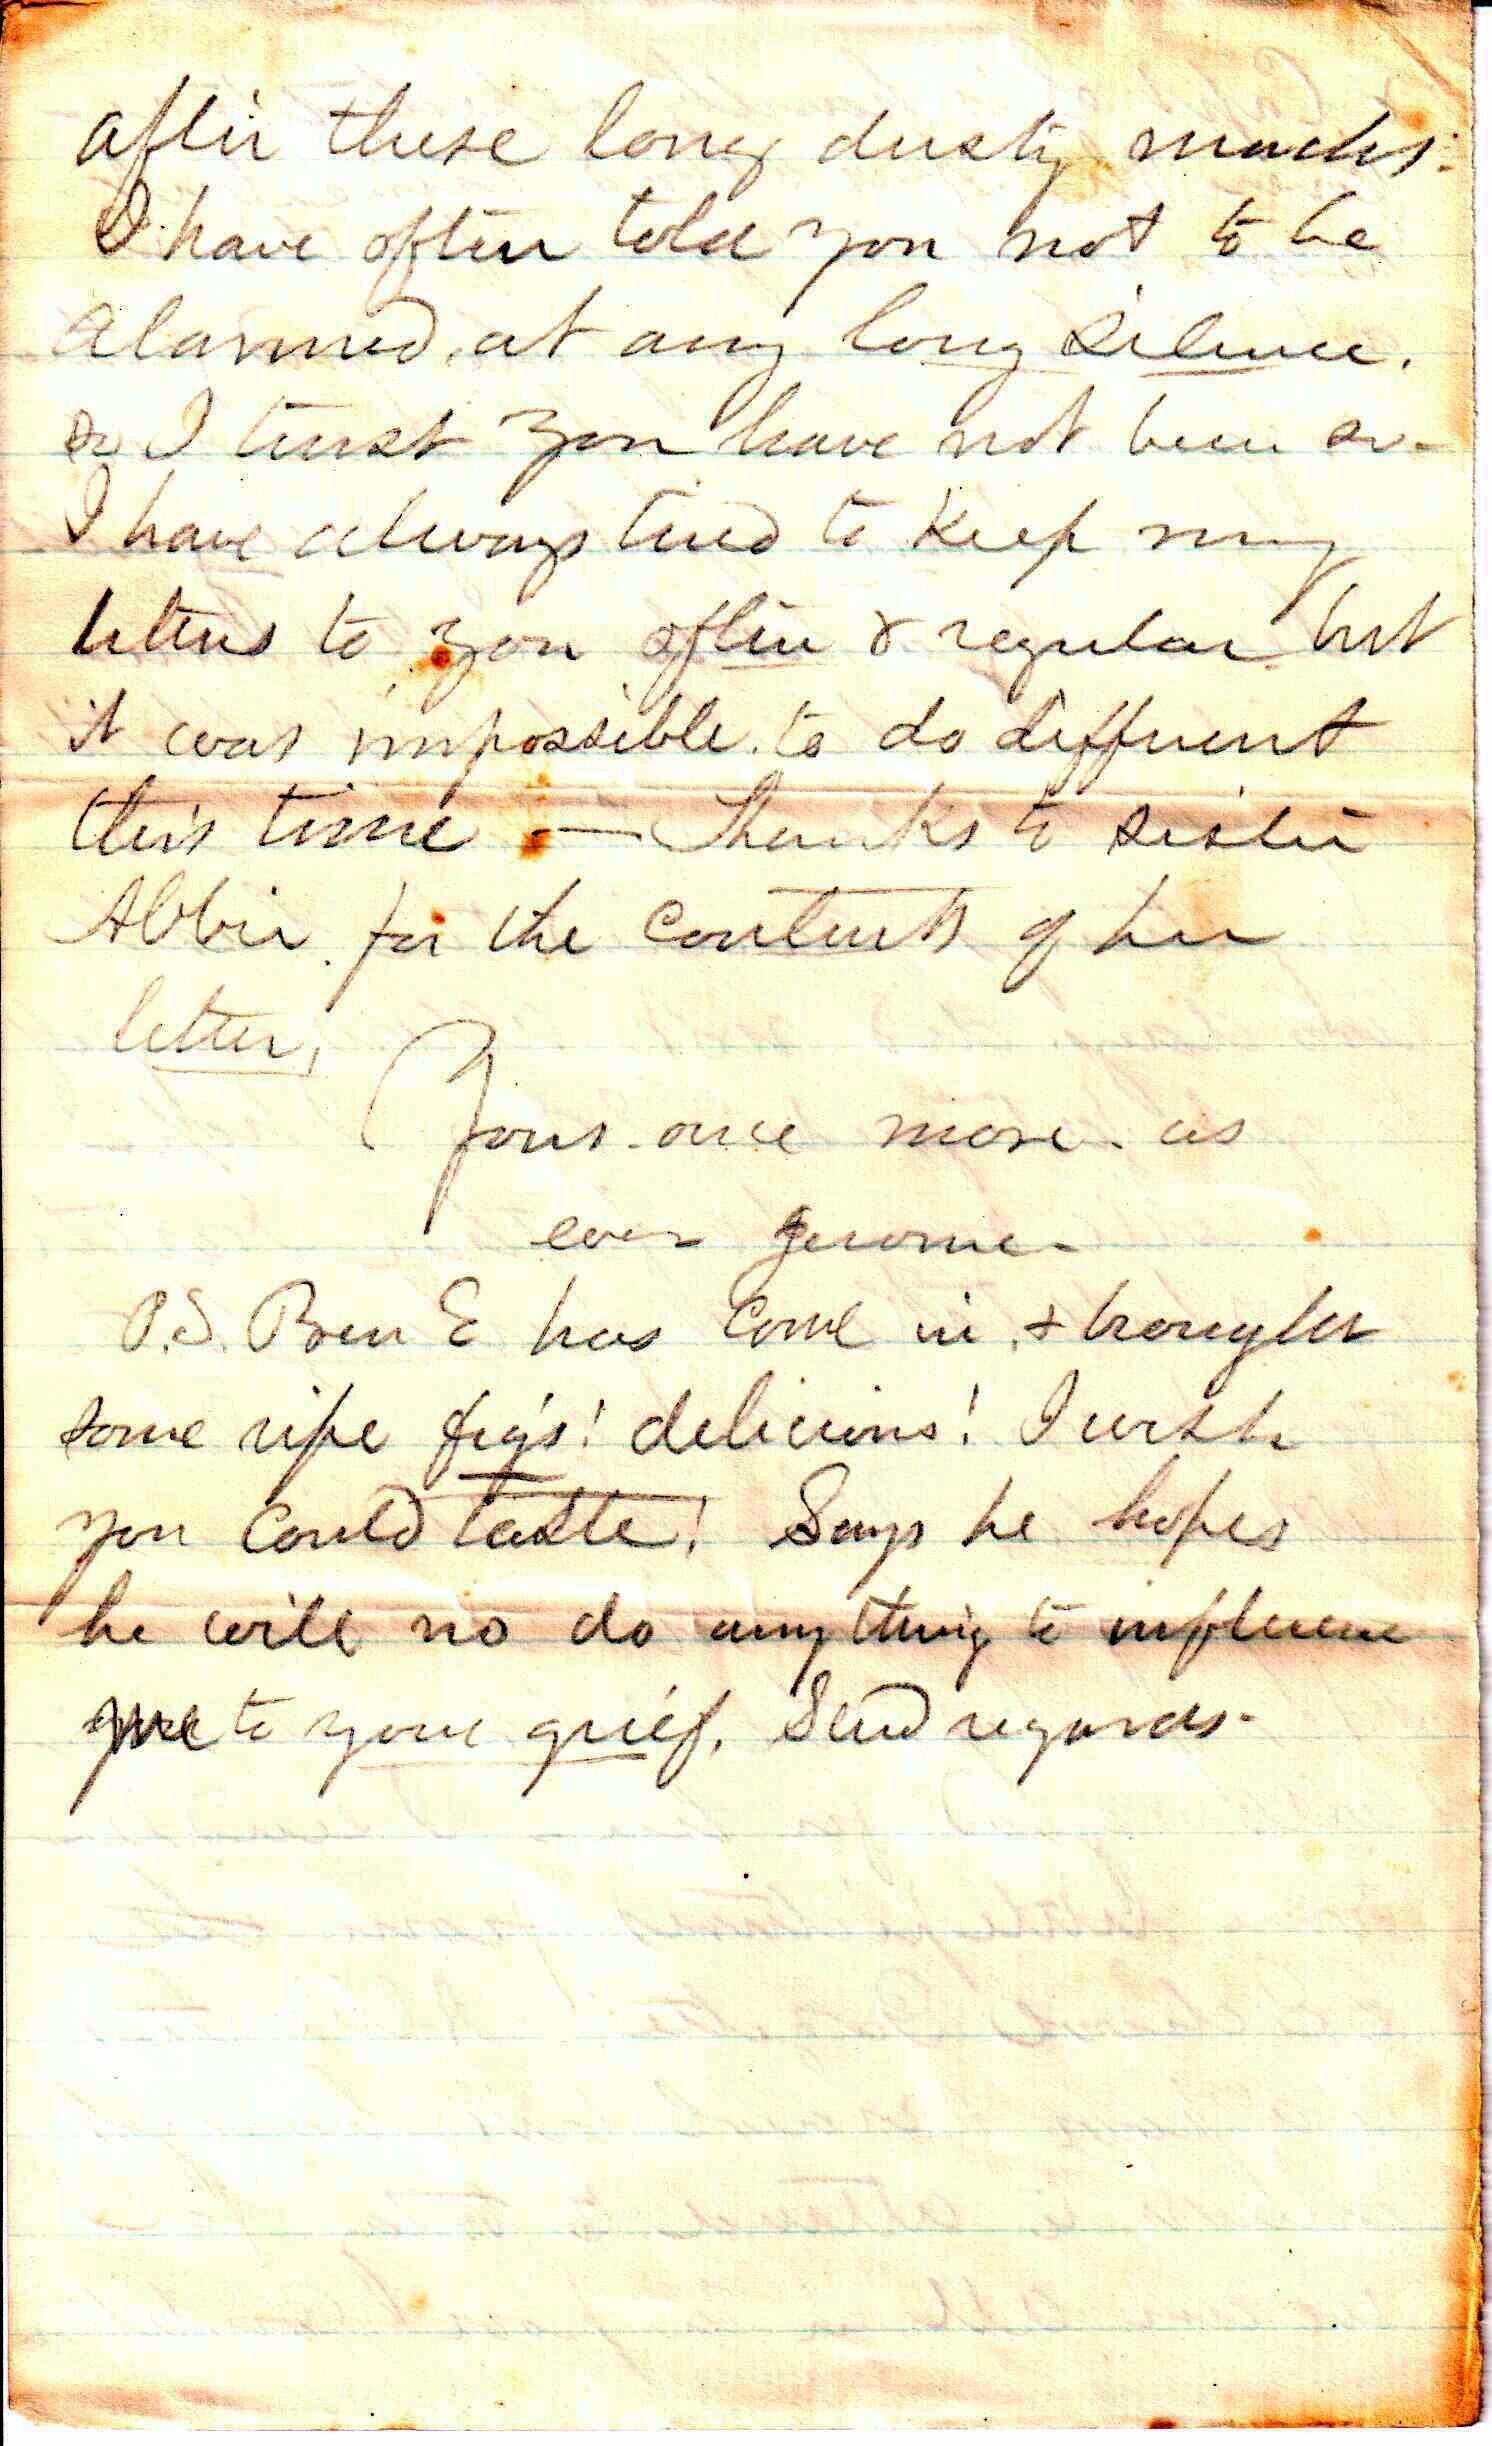 after these long dusty marches.
I have often told you not to be
alarmed, at any long silence.
so I trust you have not been so-
I have always tried to keep my
letters to you often & regular but
it was impossible to do different
this time — Thanks to sister
Abbie for the contents of her
letter,
Yours once more as
ever Jerome-
P.S. Ben E has come in, & brought
some ripe figs! delicious! I wish
you could taste! Says he hopes
he will no do anything to influence
me to your grief. Send regards-